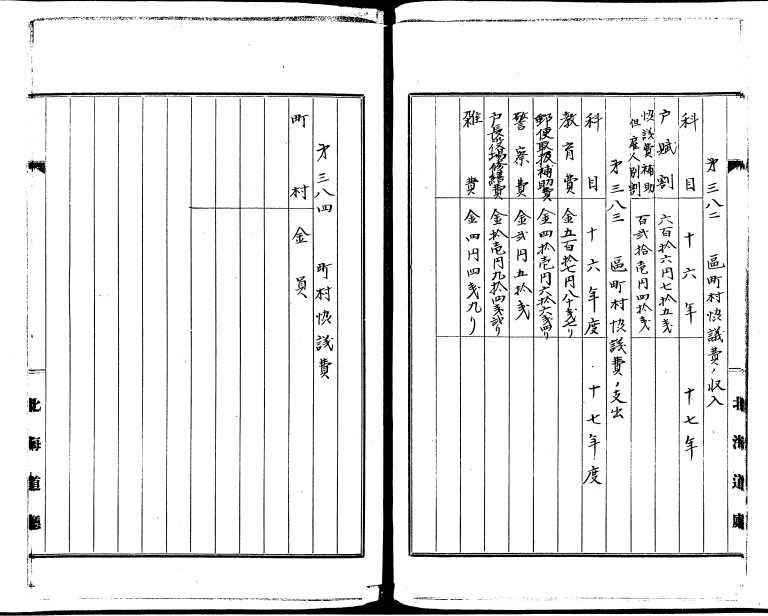 北海道廳
第三八二 區町村恊議費ノ収入
科目 十六年 十七年
戸賦割 六百拾六円七拾五戔
恊議費補助 但雇人別割 百弐拾壱円四拾戔
第三八三 區町村恊議費ノ支出
科目 十六年度 十七年度
教育費 金五百拾七円八十戔七り
郵便取扱補助費 金四拾壱円六拾六戔四り
警察費 金弐円五拾戔
戸長役場修繕費 金拾壱円九拾四戔弐り
雑費 金四円四戔九り
第三八四 町村恊議費
町村 金員
北海道廳